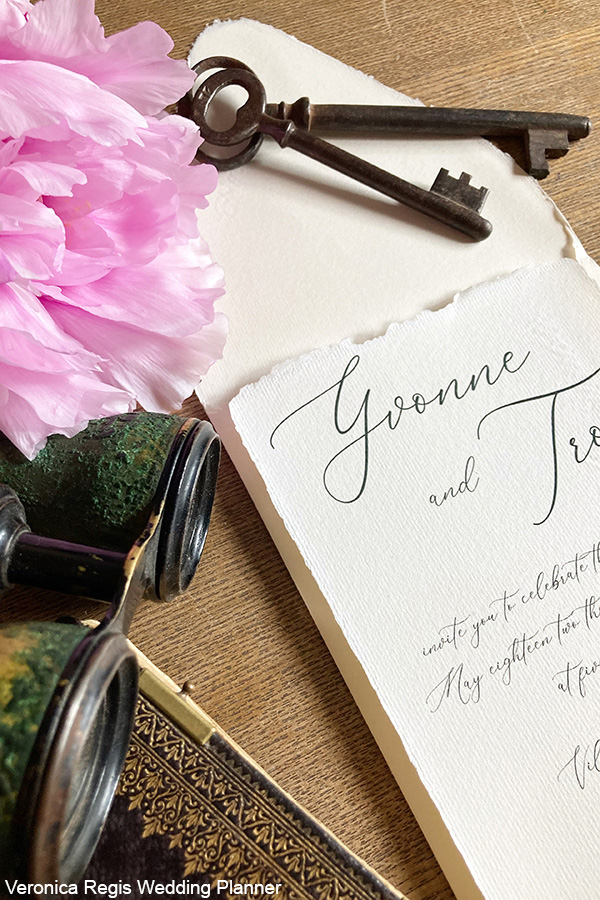 Yvonne
and
invite you to celebrate
May eighteen two
at
Veronica Regis Wedding Planner